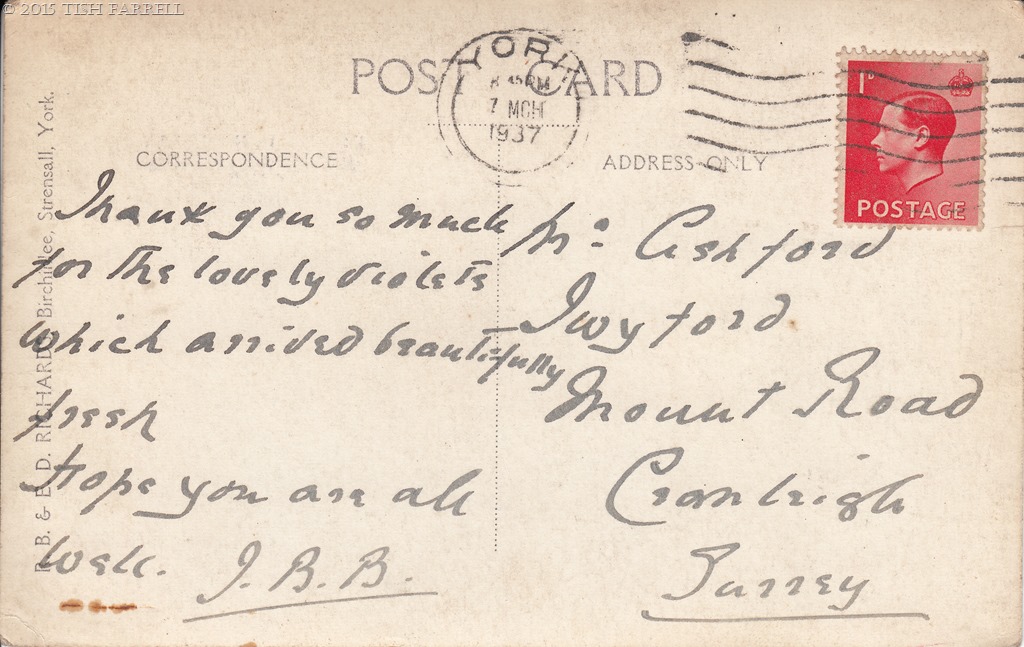 © 2015 TISH FARRELL
POST CARD
YORK
45PM
7 MCH
1937
1D
POSTAGE
CORRESPONDENCE
ADDRESS ONLY
Thank you so much
for the lovely violets
which arrived beautifully
fresh
Hope you are all
well. J.B.B.
Mr Ashford
Twyford
Mount Road
Cranleigh
Surrey
B. & E. D. RICHARDS Strensall, York.